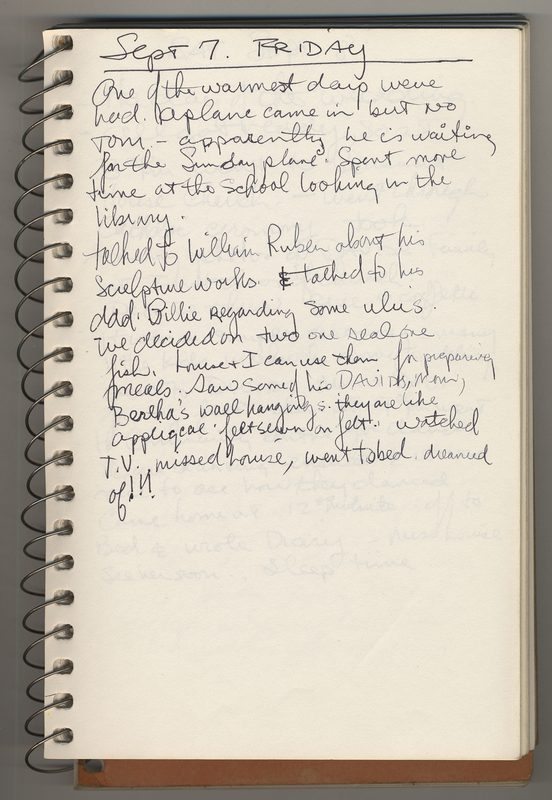 Sept 7. FRIDAY
One of the warmest days weve
had. Aplane came in but no
Tom. – apparently he is waiting
for the Sunday plane. Spent more
time at the school looking in the
library.
talked to William Ruben about his
sculpture works. & talked to his
ddd. Billie regarding some ulu's.
We decided on two one seal one
fish. Louise + I can use them for preparing
meals. Saw some of his DAVIDS, Mom,
Bertha's wall hangings. they are like
appliqcae. felt sewn on felt. watched
T.V. missed Louise, went to bed. dreamed
of!!!
Came home at 12 off to
Bed & wrote Diary miss Louise
See her soon. Sleep time